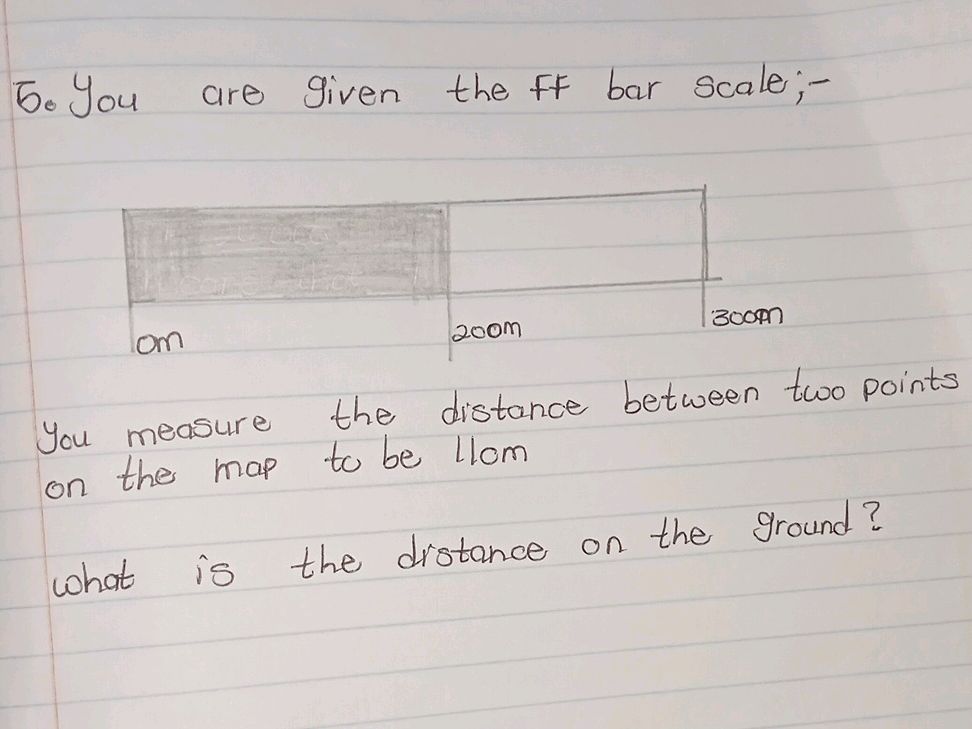 5. You are given the ff bar scale;-
0m 200m 300m
You measure the distance between two points
on the map to be 11cm
What is the distance on the ground?